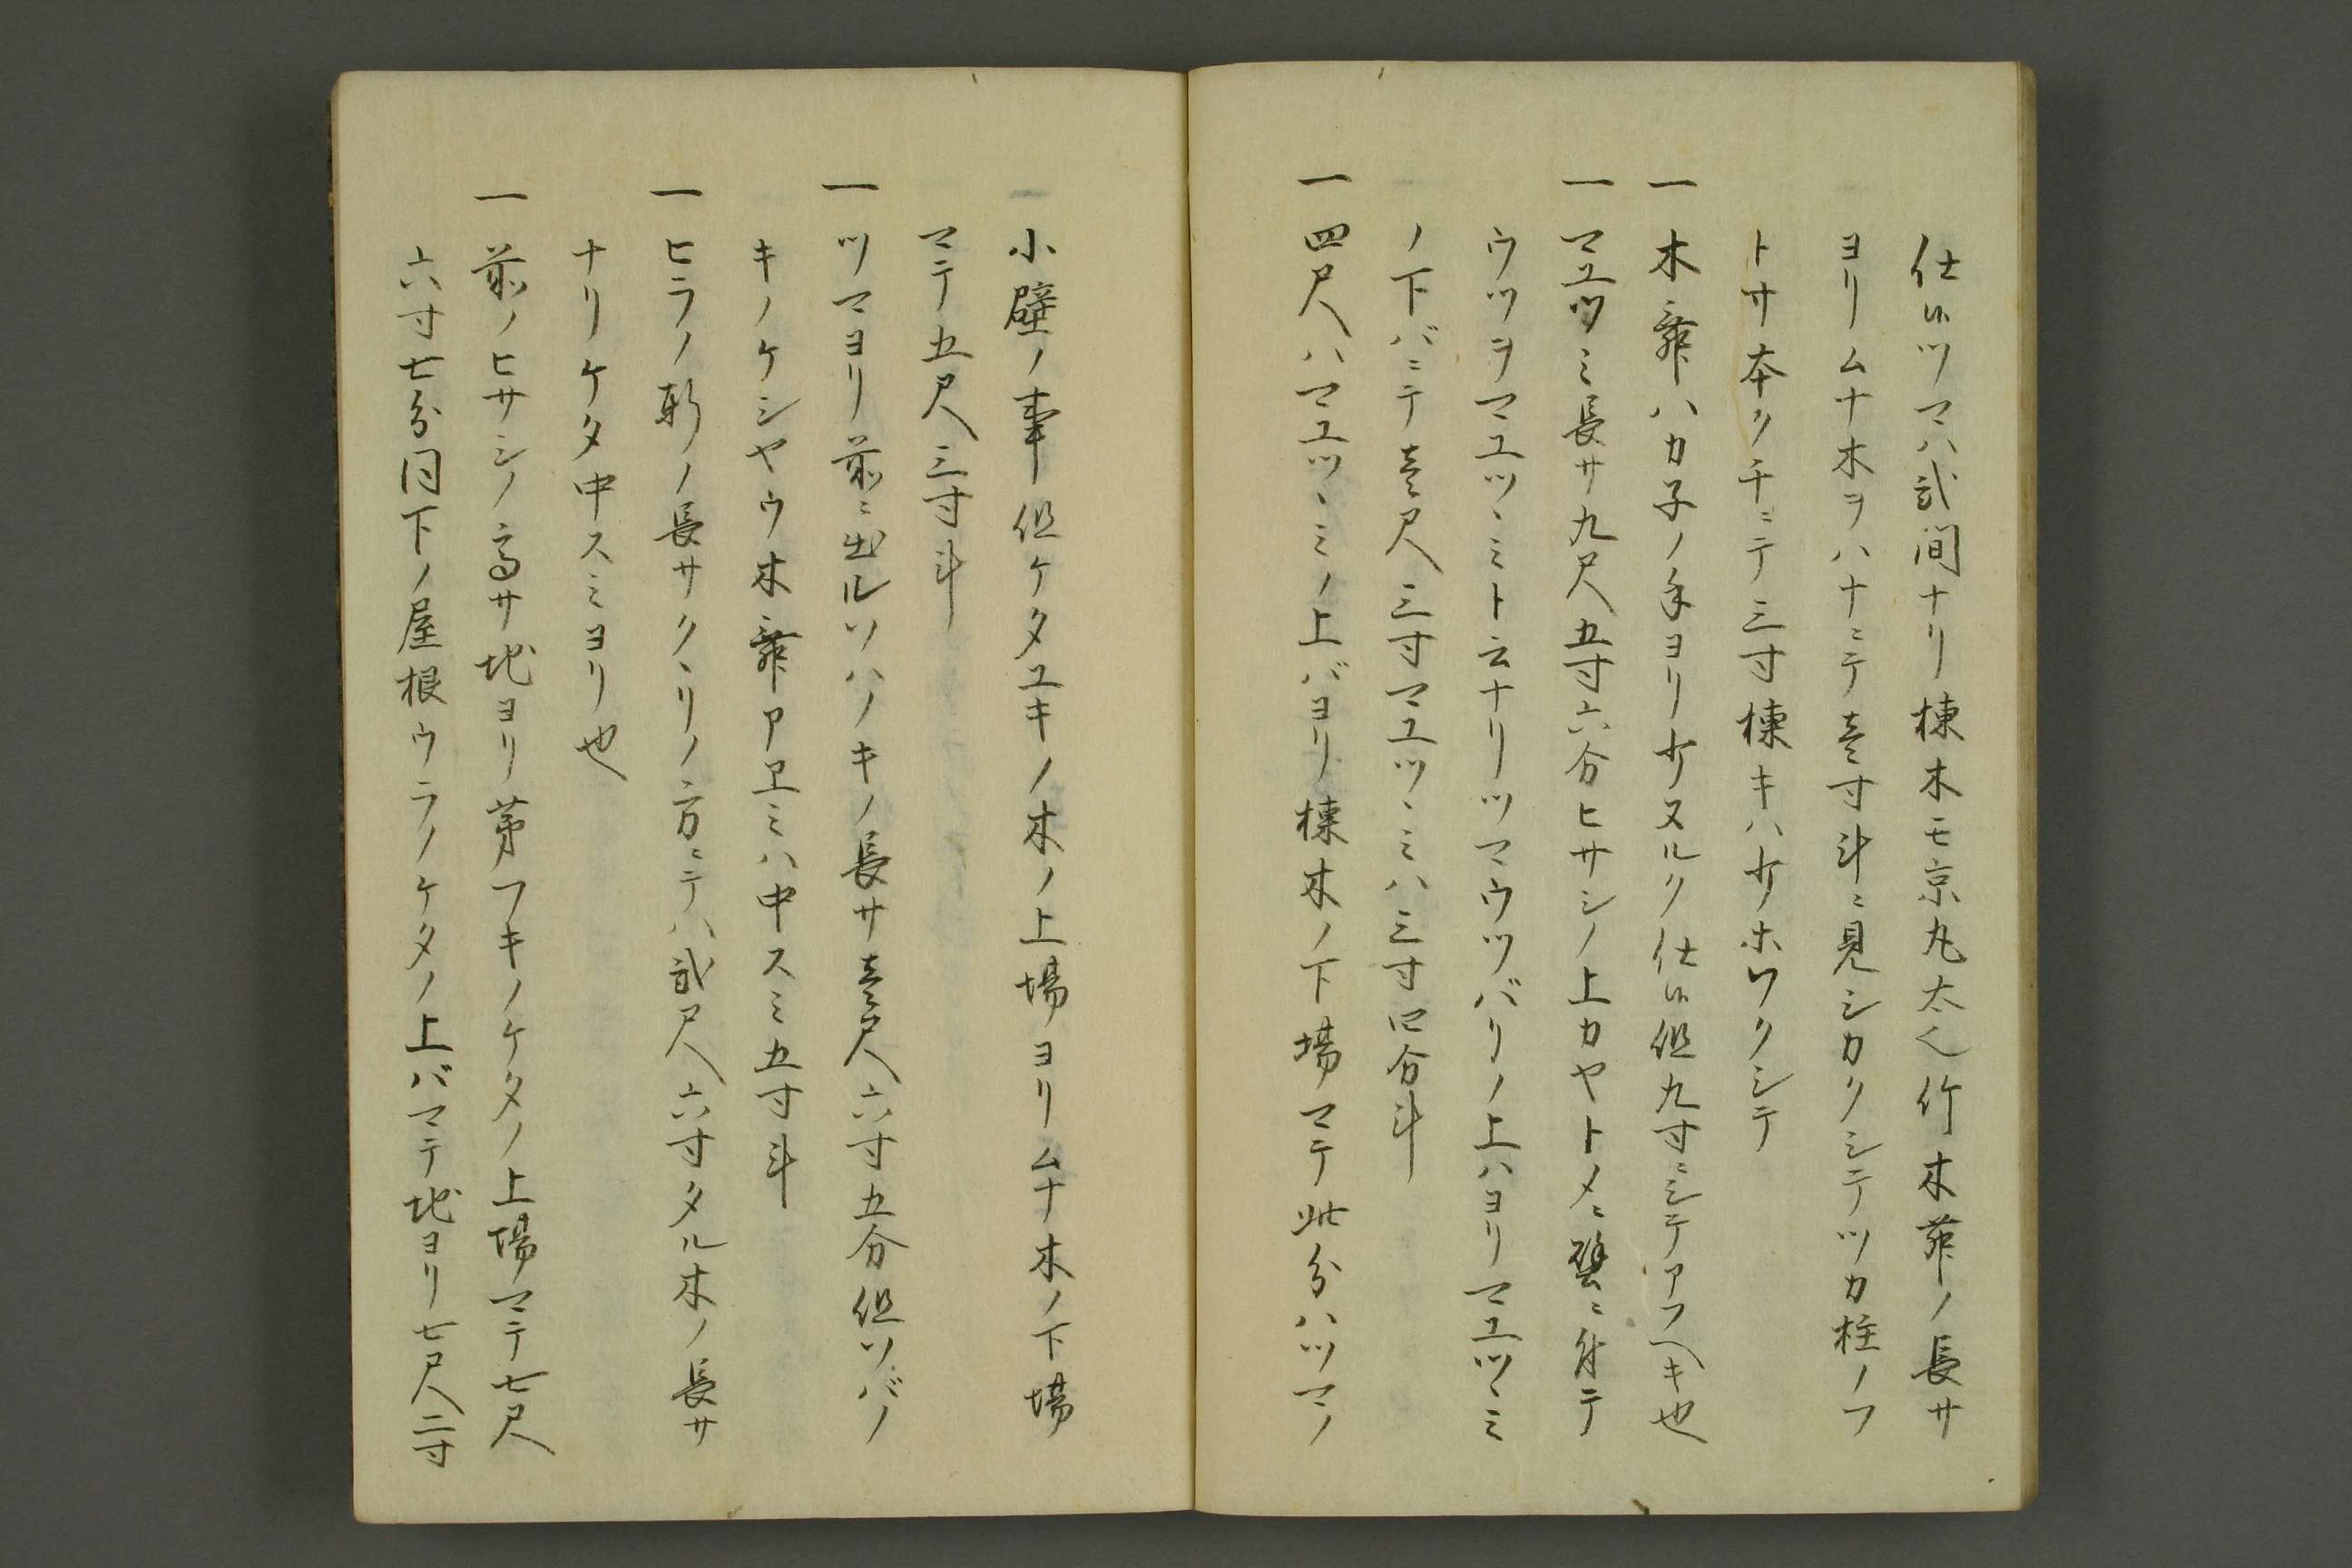 仕候ツマハ弐間ナリ棟木モ京丸太也竹木舞ノ長サ
ヨリムナ木ヲハナニテ壱寸斗ニ見シカクシテツカ柱ノフ
トサ本クチニテ三寸棟キハ少ホソクシテ
一木舞ハカ子ノ手ヨリ少ヌルク仕候但九寸ニシテアフヘキ也
一マユツミ長サ九尺五寸六分ヒサシノ上カヤトメニ壁ニ付テ
ウツヲマユツヽミト云ナリツマウツバリノ上ハヨリマユツヽミ
ノ下バニテ壱尺三寸マユツヽミハ三寸四分斗
一四尺ハマユツヽミノ上バヨリ棟木ノ下場マテ此分ハツマノ
小壁ノ事但ケタユキノ木ノ上場ヨリムナ木ノ下場
マテ五尺三寸斗
一ツマヨリ前ニ出ルソハノキノ長サ壱尺六寸五分但ソバノ
キノケシヤウ木舞アヱミハ中スミ五寸斗
一ヒラノ軒ノ長サクヽリノ方ニテハ弐尺六寸タル木ノ長サ
ナリケタ中スミヨリ也
一前ノヒサシノ高サ地ヨリ茅フキノケタノ上場マテ七尺
六寸七分同下ノ屋根ウラノケタノ上バマテ地ヨリ七尺二寸